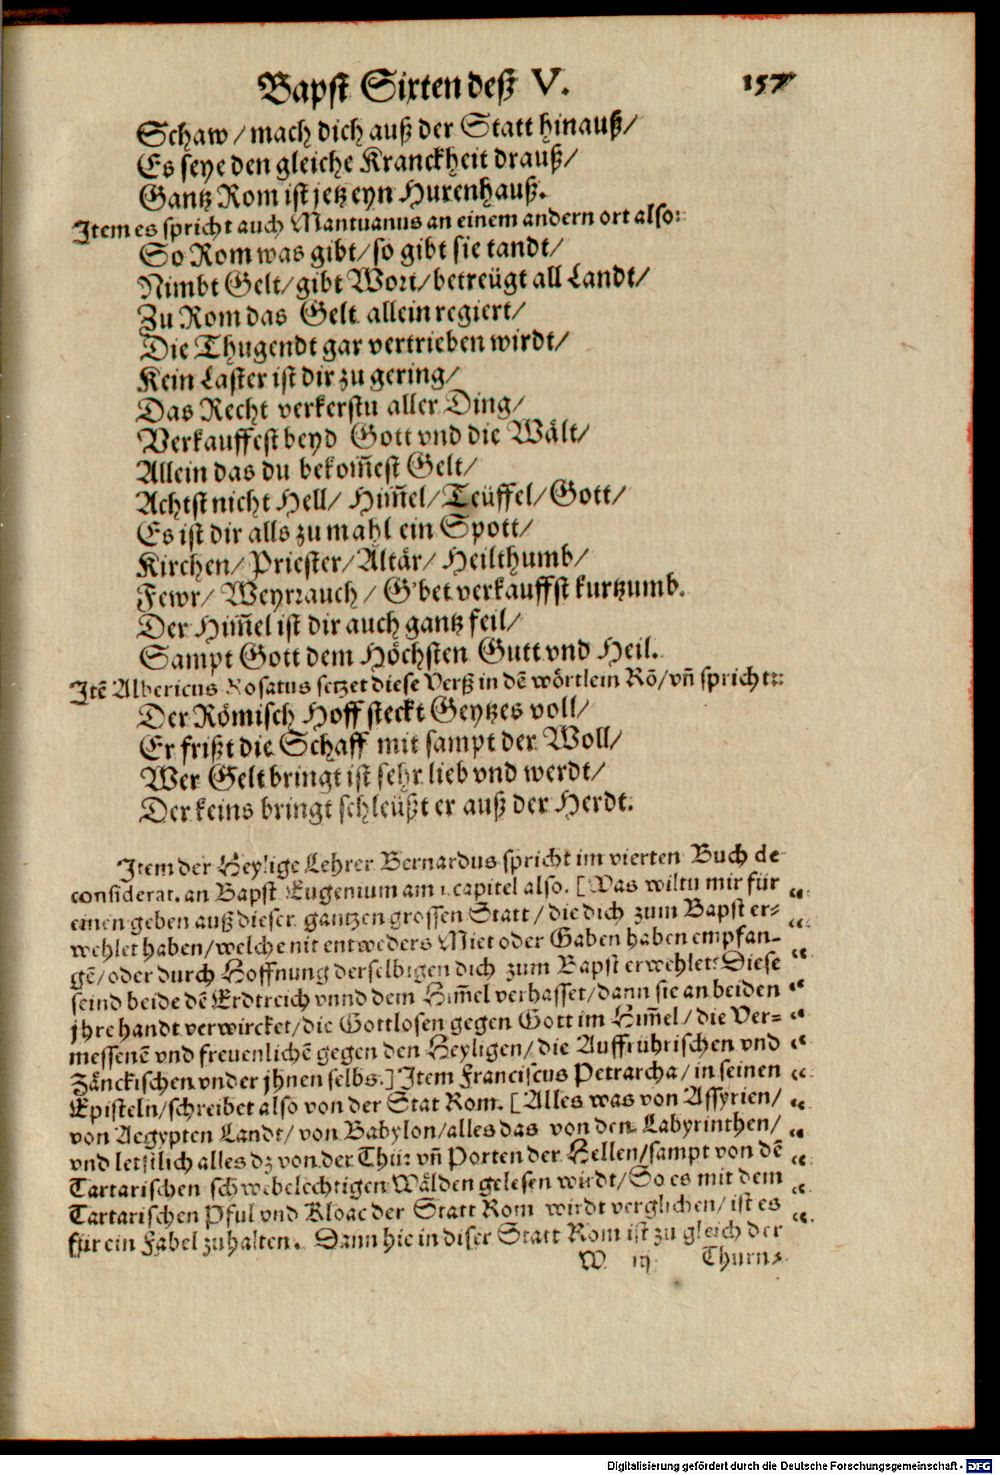 Bapst Sixten deß V. 157
Schaw / mach dich auß der Statt hinauß /
Es seye den gleiche Kranckheit drauß /
Gantz Rom ist jetz eyn Hurenhauß.
Item es spricht auch Mantuanus an einem andern ort also:
So Rom was gibt / so gibt sie tandt /
Nimbt Gelt / gibt Wort / betreügt all Landt /
Zu Rom das Gelt allein regiert /
Die Thugendt gar vertrieben wirdt /
Kein Laster ist dir zu gering /
Das Recht verkerstu aller Ding /
Verkauffest beyd Gott vnd die Wält /
Allein das du bekom̃est Gelt /
Achtst nicht Hell / Him̃el / Teüffel / Gott /
Es ist dir alls zu mahl ein Spott /
Kirchen / Priester / Altär / Heilthumb /
Fewr / Weyrrauch / G'bet verkauffst kurtzumb.
Der Him̃el ist dir auch gantz feil /
Sampt Gott dem Höchsten Gutt vnd Heil.
Itẽ Albericus Rosatus setzet diese Verß in dẽ wörtlein Rõ / vñ spricht:
Der Römisch Hoff steckt Geytzes voll /
Er frißt die Schaff mit sampt der Woll /
Wer Gelt bringt ist sehr lieb vnd werdt /
Der keins bringt schleüßt er auß der Herdt.
Item der Heylige Lehrer Bernardus spricht im vierten Buch de
considerat. an Bapst Eugenium am capitel also. [Was wiltu mir für
einen geben auß dieser gantzen grossen Statt / die dich zum Bapst er=
wehlet haben / welche nit entweders Miet oder Gaben haben empfan=
gẽ / oder durch Hoffnung derselbigen dich zum Bapst erwehlet: Diese
seind beide dẽ Erdtreich vnnd dem Him̃el verhasset / dann sie an beiden
jhre handt verwircket / die Gottlosen gegen Gott im Him̃el / die Ver=
messenẽ vnd freuenlichẽ gegen den Heyligen / die Auffrührischen vnd
Zänckischen vnder jhnen selbs.] Item Franciscus Petrarcha / in seinen
Episteln / schreibet also von der Stat Rom. [Alles was von Assyrien /
von Aegypten Landt / von Babylon / alles das von den Labyrinthen /
vnd letstlich alles dz von der Thür vñ Porten der Hellen / sampt von dẽ
Tartarischen schwebelechtigen Wälden gelesen wirdt / So es mit dem
Tartarischen Pful vnd Kloac der Statt Rom wirdt verglichen / ist es
für ein Fabel zuhalten. Dann hie in diser Statt Rom ist zu gleich der
W iij Thurn=
Digitalisierung gefördert durch die Deutsche Forschungsgemeinschaft - DFG